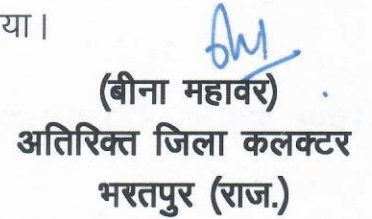 या।
(बीना महावर)
अतिरिक्त जिला कलक्टर
भरतपुर (राज.)